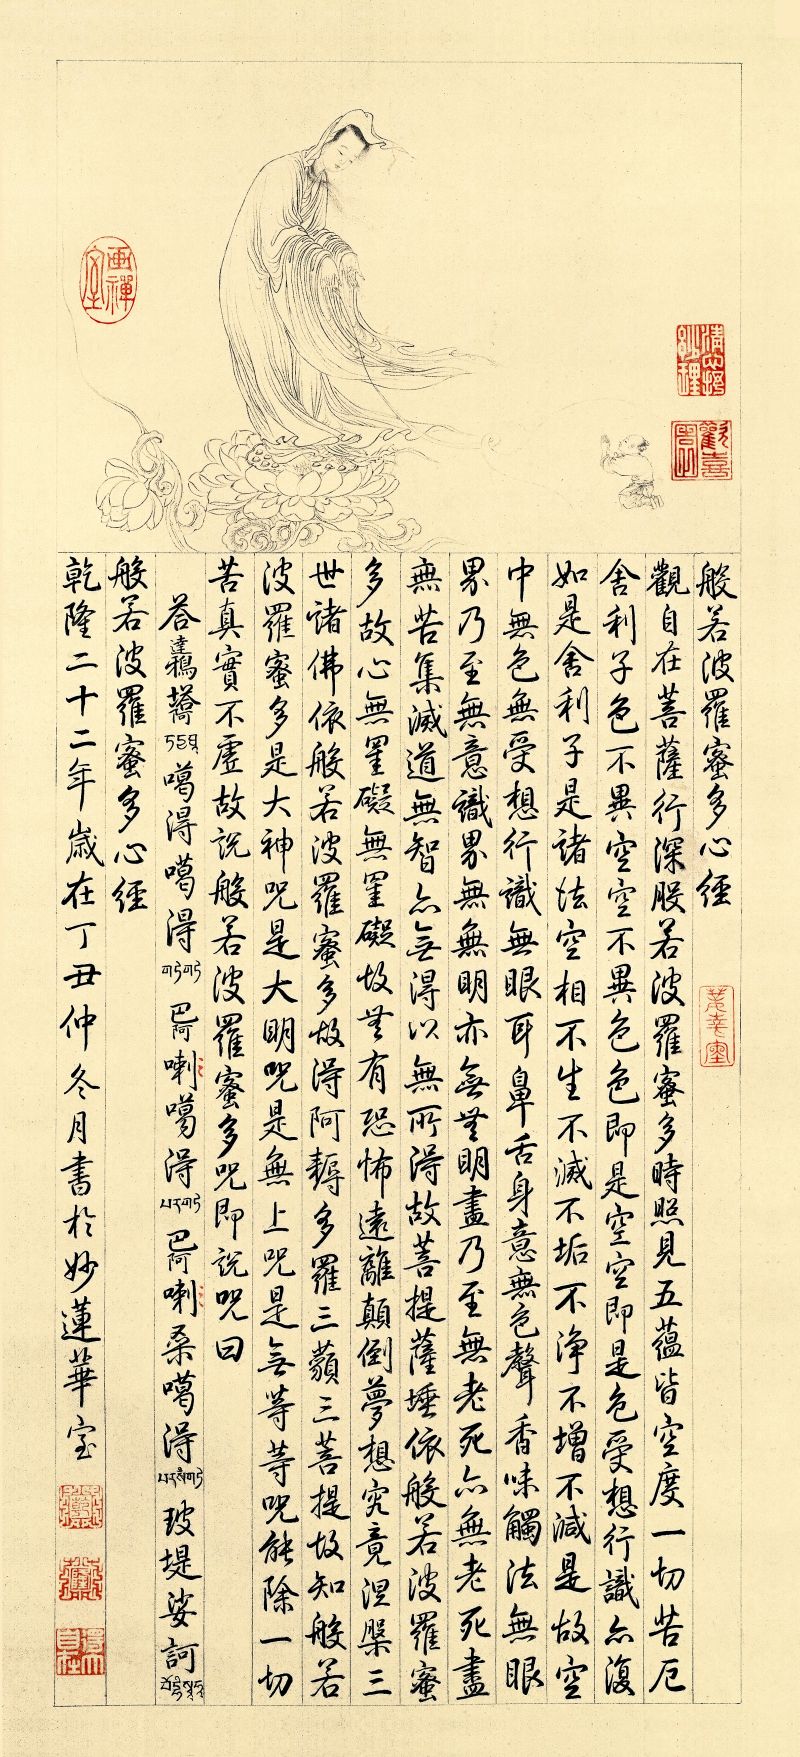 畫禪室
清心抒妙理
歡喜園
般若波羅蜜多心經
觀自在菩薩行深般若波羅蜜多時照見五蘊皆空度一切苦厄
舍利子色不異空空不異色色即是空空即是色受想行識亦復
如是舍利子是諸法空相不生不滅不垢不淨不增不減是故空
中無色無受想行識無眼耳鼻舌身意無色聲香味觸法無眼
界乃至無意識界無無明亦無無明盡乃至無老死亦無老死盡
無苦集滅道無智亦無得以無所得故菩提薩埵依般若波羅蜜
多故心無罣礙無罣礙故無有恐怖遠離顛倒夢想究竟涅槃三
世諸佛依般若波羅蜜多故得阿耨多羅三藐三菩提故知般若
波羅蜜多是大神咒是大明咒是無上咒是無等等咒能除一切
苦真實不虛故說般若波羅蜜多咒即說咒曰
答達鴉塔噶得噶得巴阿喇噶得巴阿喇桑噶得玻堤娑訶
般若波羅蜜多心經
乾隆二十二年歲在丁丑仲冬月書於妙蓮華室